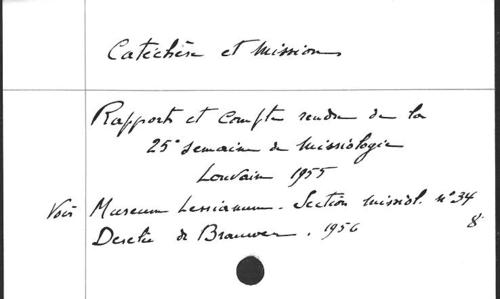 Catéchèse et Missions
Rapports et Compte rendu de la
25e semaine de Missiologie
Louvain 1955
Voir Museum Lessianum. Section missiol. n° 34
Desclée de Brouwer. 1956 8°